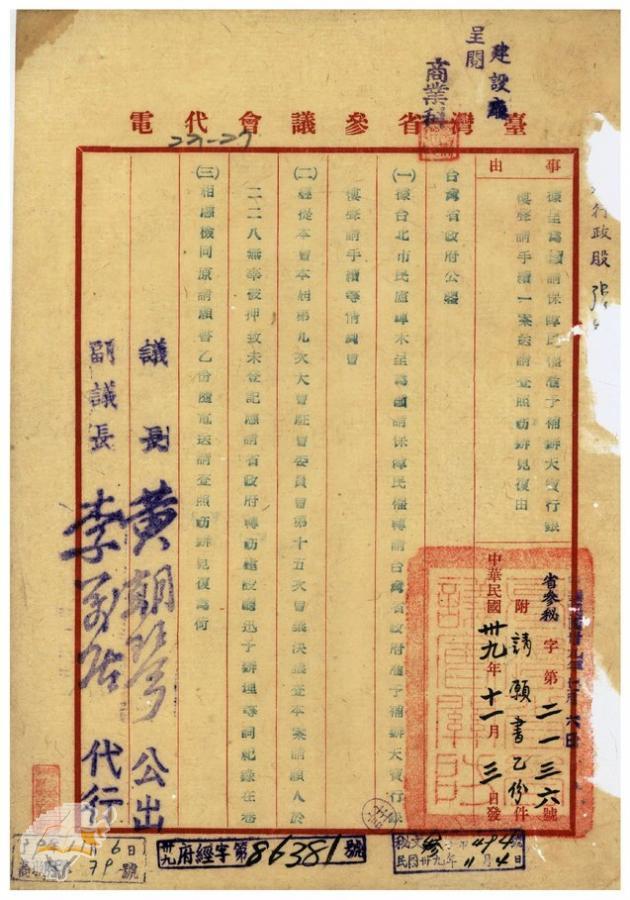 呈閱
建設廳
商業科
臺灣省參議會代電
22-27
行政股
事由
據呈為懇請保障民權准予補辦天寶行銀
樓聲請手續一案送請查照酌辦見復由
省參秘字第二一三六號
附請願書乙份件
中華民國卅九年十一月三日發
台灣省政府公鑒
(一)據台北市民盧 木呈為懇請保障民權轉請台灣省政府准予補辦天寶行銀
樓聲請手續等情到會
(二)經提本會本屆第九次大會駐會委員會第十五次會議決議查本案請願人於
二二八無辜被押致未登記應請省政府轉飭建設廳迅予辦理等詞紀錄在卷
(三)相應檢同原請願書乙份隨電送請查照酌辦見復為荷
議長 黃朝琴 公出
副議長 李萬居 代行
卅九府經字第86381號
民國卅九年11月4日